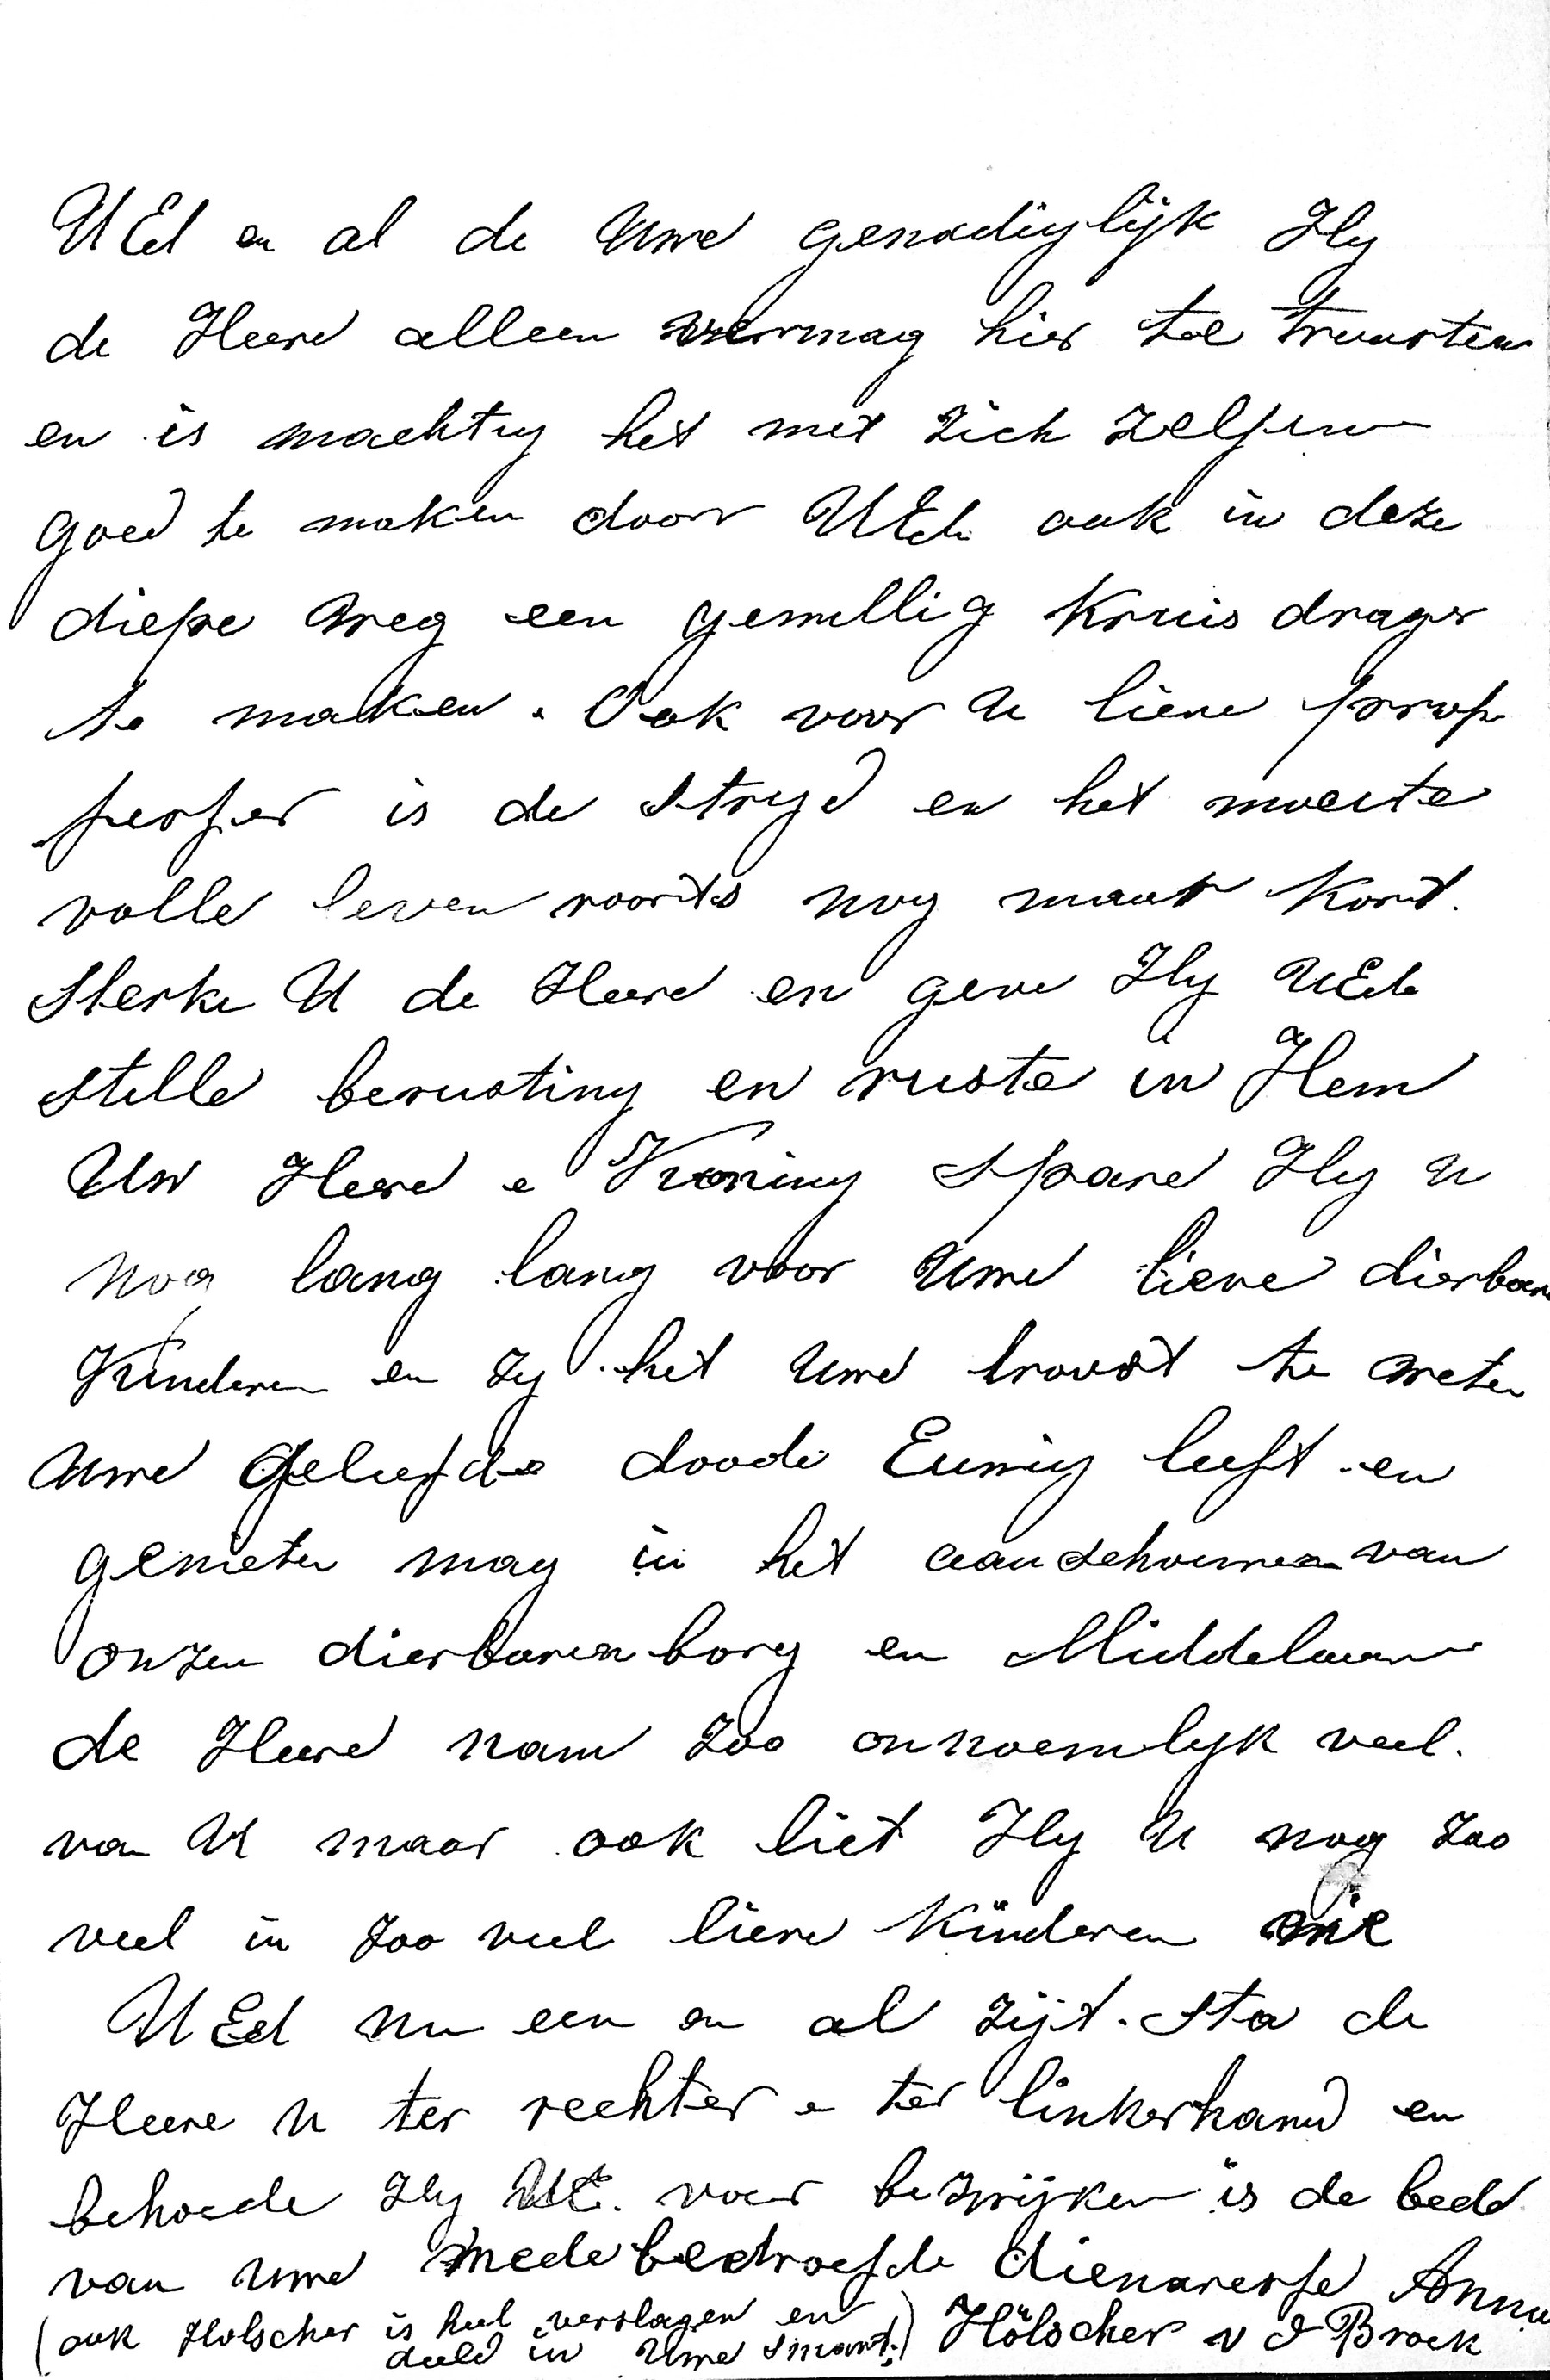 UEd en al de Uwe genadiglijk Hy
de Heere alleen vermag hier toe troosten
en is machtig het met zich zelfen
goed te maken door UEd. ook in deze
diepe weg een gewillig kruis drager
te maken. Ook voor u lieve
is de Stryd en het moeite
volle leven voorts nog maar kort.
Sterke U de Heere en geve Hy UEd
stille berusting en ruste in Hem
Uw Heere e Koning Spare Hy u
nog lang lang voor Uwe lieve dierbare
Kinderen en zy het Uwe troost te weten
Uwe geliefde doode Eeuwig leeft en
genieten mag in het aanschouwen van
onzen dierbaren borg en Middelaar
de Heere nam zoo onnoemlyk veel.
van U maar ook liet Hy U nog zoo
veel in zoo veel lieve Kinderen
UEd nu een en al zijt. Sta de
Heere u ter rechter e ter linkerhand en
behoede Hy UE. voor bezwijken is de bede
van Uwe mede bedroefde dienaresse Anna
(ook Holscher is heel verslagen en
deeld in Uwe Smart.) Hölscher v d Broek